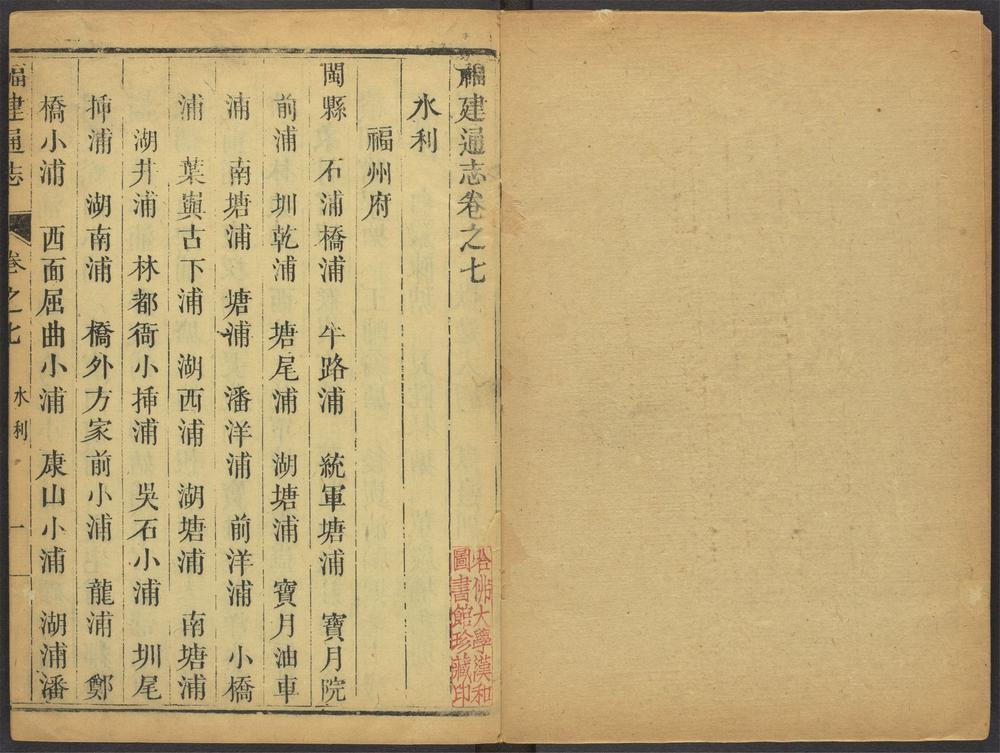 福建通志卷之七
水利
福州府
閩縣 石浦橋浦 牛路浦 統軍塘浦 寶月院
前浦 圳乾浦 塘尾浦 湖塘浦 寶月油車
浦 南塘浦 塘浦 潘洋浦 前洋浦 小橋
浦 葉嶼古下浦 湖西浦 湖塘浦 南塘浦
湖井浦 林都衙小揷浦 吳石小浦 圳尾
揷浦 湖南浦 橋外方家前小浦 龍浦 鄭
橋小浦 西面屈曲小浦 康山小浦 湖浦潘
福建通志 卷之七 水利 一
哈佛大學漢和
圖書館珍藏印